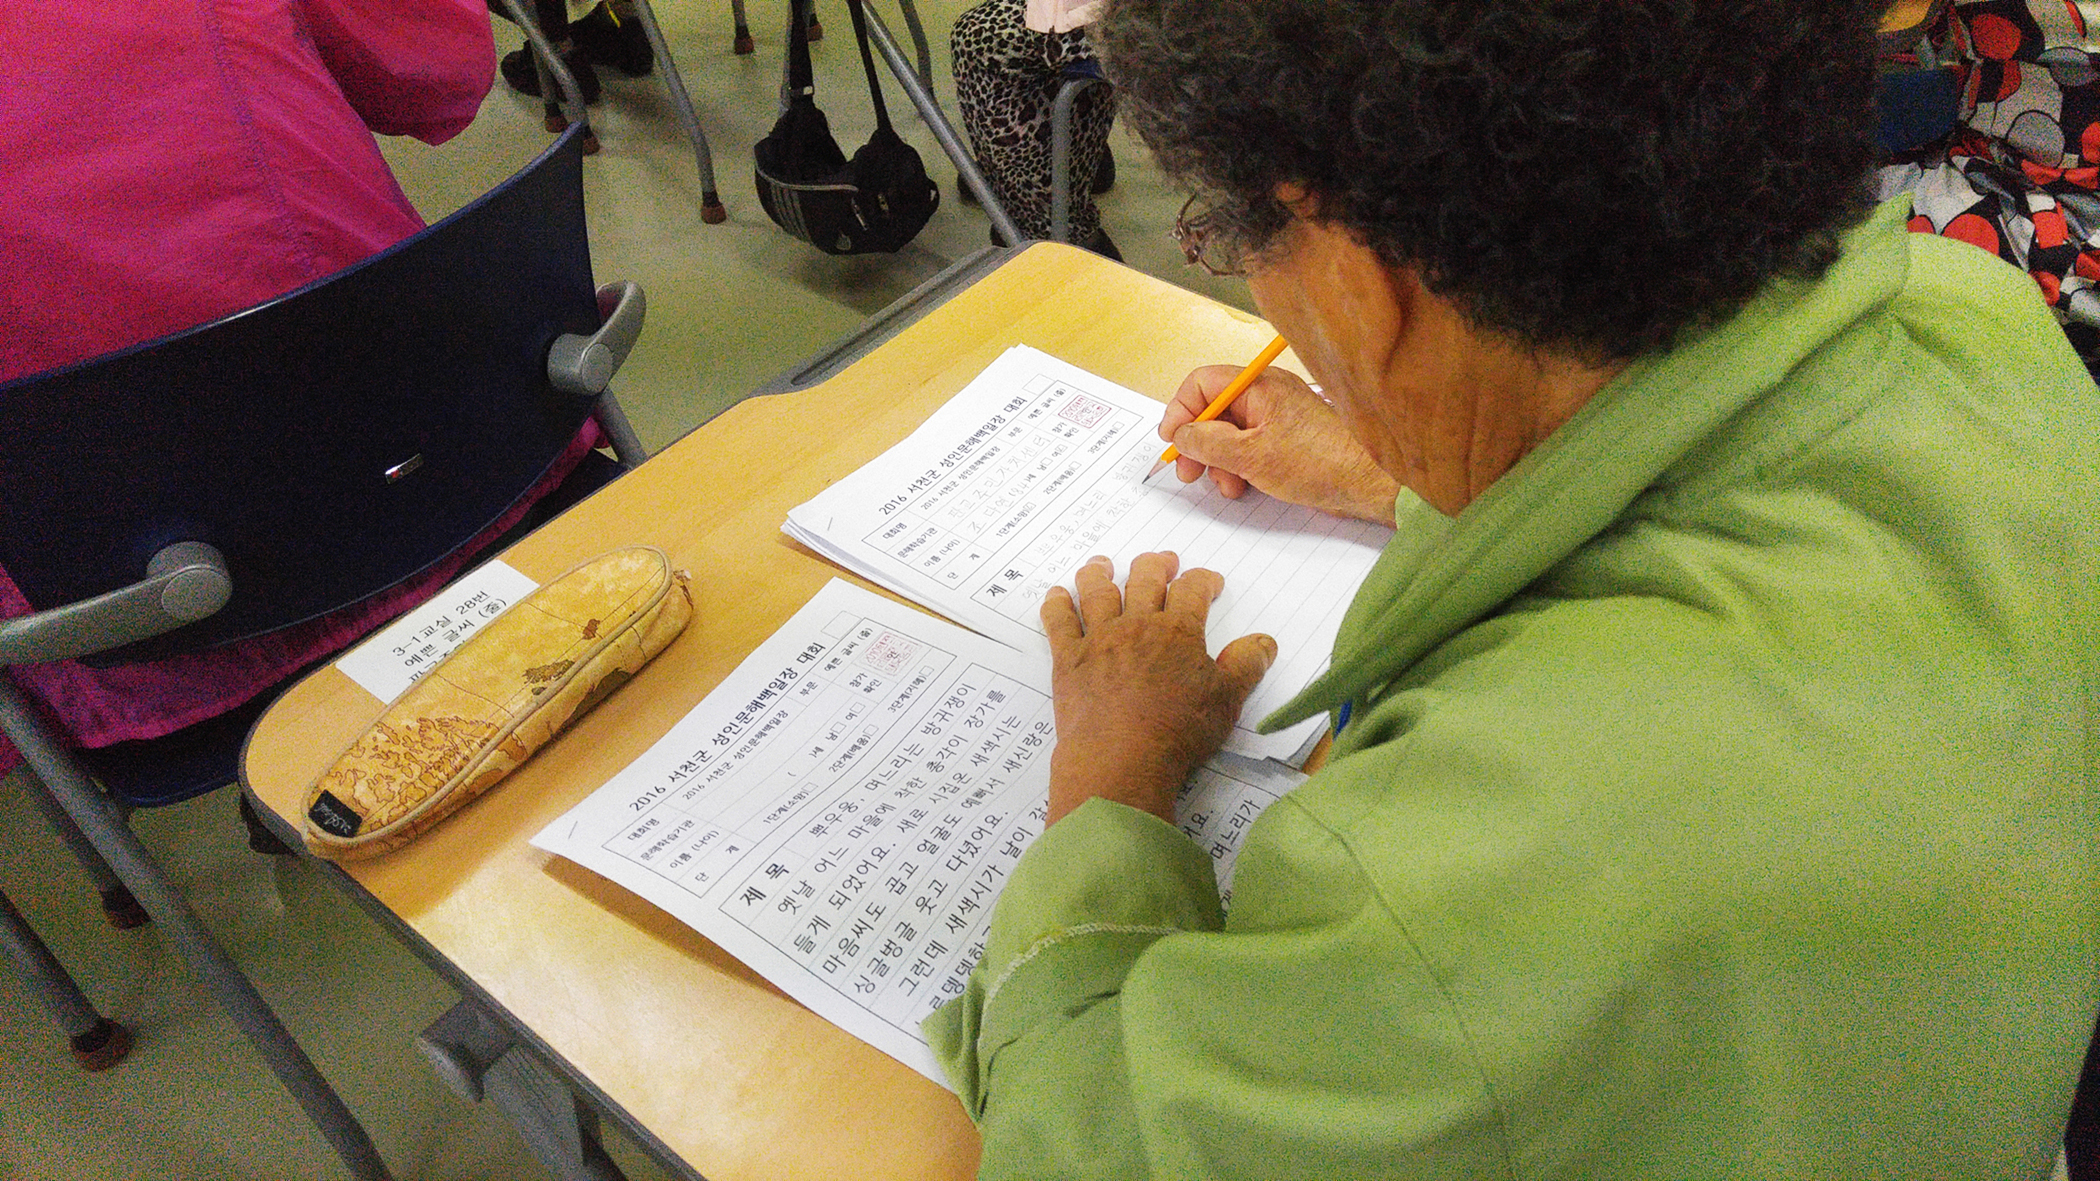 2016 서천군 성인문해백일장 대회
대회명 2016 서천군 성인문해백일장 부문 예쁜 글씨 (줄)
문해학습기관 판교주민자치센터 참가 확인
이름 (나이) )세 남 여
단 계 1단계(소망) 2단계(배움) 3단계(지혜)
제 목 뿌우웅, 며느리 방귀쟁이
옛날 어느 마을에 착한
3-1교실 28번
예쁜 글씨 (줄)
2016 서천군 성인문해백일장 대회
대회명 2016 서천군 성인문해백일장 부문 예쁜 글씨 (줄)
문해학습기관 참가 확인
이름 (나이) ( )세 남 여
단 계 1단계(소망) 2단계(배움) 3단계(지혜)
제 목 뿌우웅, 며느리는 방귀쟁이
옛날 어느 마을에 착한 총각이 장가를
들게 되었어요. 새로 시집온 새색시는
마음씨도 곱고 얼굴도 예뻐서 새신랑은
싱글벙글 웃고 다녔어요.
그런데 새색시가 날이 갈
며느리가